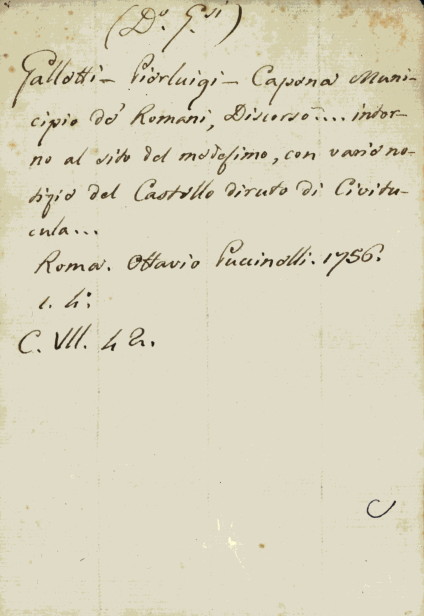 (D.º G.si)
Gallotti - Pierluigi - Capena Muni-
cipio de' Romani, Discorso.... intor-
no al sito del medesimo, con varie no-
tizie del Castello diruto di Civitu-
cula...
Roma. Ottavio Puccinelli. 1756.
1. 4.º
C. VII. 42.
C